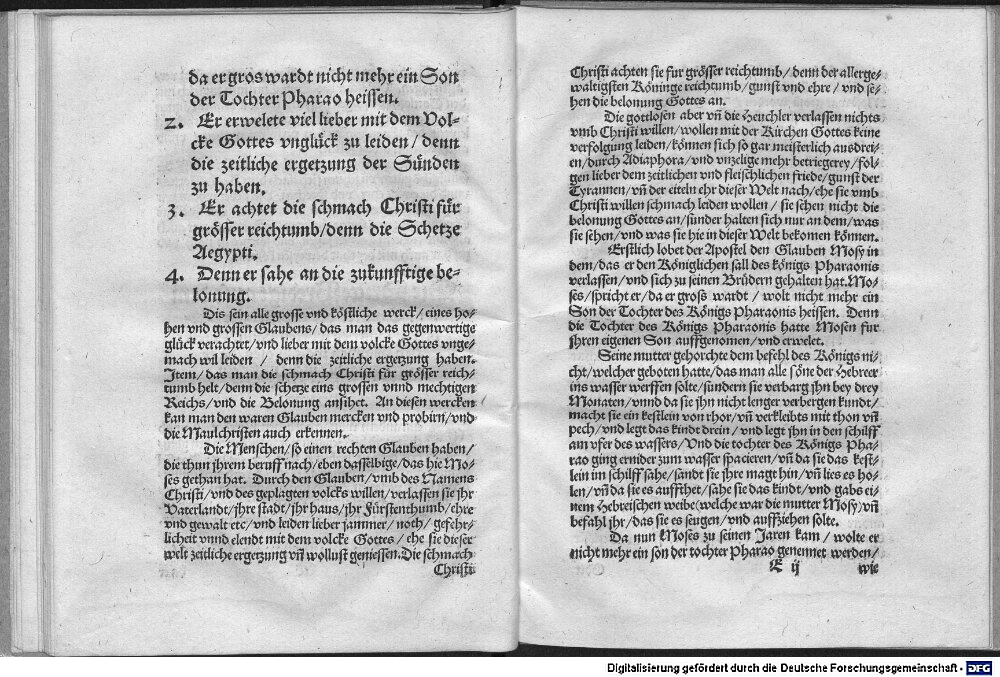 da er gros wardt nicht mehr ein Son
der Tochter Pharao heissen.
2. Er erwelete viel lieber mit dem Vol-
cke Gottes vnglück zu leiden/ denn
die zeitliche ergetzung der Sünden
zu haben.
3. Er achtet die schmach Christi für
grösser reichtumb/denn die Schetze
Aegypti.
4. Denn er sahe an die zukunfftige be-
lonung.
Dis sein alle grosse vnd köstliche werck/ eines ho-
hen vnd grossen Glaubens/das man das gegenwertige
glück verachtet/vnd lieber mit dem volcke Gottes vnge-
mach wil leiden / denn die zeitliche ergetzung haben.
Item/das man die schmach Christi für grösser reich-
tumb helt/denn die schetze eins grossen vnnd mechtigen
Reichs/vnd die Belonung ansihet. An diesen wercken
kan man den waren Glauben mercken vnd probirn/vnd
die Maulchristen auch erkennen.
Die Menschen/so einen rechten Glauben haben/
die thun jhrem beruff nach/eben dasselbige/das hie Mo-
ses gethan hat. Durch den Glauben/vmb des Namens
Christi/vnd des geplagten volcks willen/verlassen sie jhr
Vaterlandt/jhre stadt/jhr haus/jhr Fürstenthumb/ehre
vnd gewalt etc/vnd leiden lieber jammer/noth/gefehr-
licheit vnnd elendt mit dem volcke Gottes/ehe sie dieser
welt zeitliche ergetzung vñ wollust geniessen.Die schmach
Christi
Christi achten sie fur grösser reichtumb/denn der allerge-
waltigsten Köninge reichtumb/gunst vnd ehre/vnd se-
hen die belonung Gottes an.
Die gottlosen aber vñ die Heuchler verlassen nichts
vmb Christi willen/wollen mit der Kirchen Gottes keine
verfolgung leiden/können sich so gar meisterlich ausdrei-
en/durch Adiaphora/vnd vnzelige mehr betriegerey/fol-
gen lieber dem zeitlichen vnd fleischlichen friede/gunst der
Tyrannen/vñ der eiteln ehr dieser Welt nach/ehe sie vmb
Christi willen schmach leiden wollen/ sie sehen nicht die
belonung Gottes an/sunder halten sich nur an dem/was
sie sehen/vnd was sie hie in dieser Welt bekomen können.
Erstlich lobet der Apostel den Glauben Mosy in
dem/das er den Königlichen sall des königs Pharaonis
verlassen/vnd sich zu seinen Brüdern gehalten hat.Mo-
ses/spricht er/da er groß wardt / wolt nicht mehr ein
Son der Tochter des Königs Pharaonis heissen. Denn
die Tochter des Königs Pharaonis hatte Mosen fur
jhren eigenen Son auffgenomen/vnd erwelet.
Seine mutter gehorchte dem befehl des Königs ni-
cht/welcher geboten hatte/das man alle söne der Hebreer
ins wasser werffen solte/sundern sie verbarg jhn bey drey
Monaten/vnnd da sie jhn nicht lenger verbergen kundt/
macht sie ein kestlein von rhor/vñ verkleibts mit thon vñ
pech/vnd legt das kindt drein/ vnd legt jhn in den schilff
am vfer des wassers/Vnd die tochter des Königs Pha-
rao ging ernider zum wasser spacieren/vñ da sie das kest-
lein im schilff sahe/sandt sie jhre magt hin/vñ lies es ho-
len/vñ da sie es auffthet/sahe sie das kindt/vnd gabs ei-
nem Hebreischen weibe(welche war die mutter Mosy)vñ
befahl jhr/das sie es seugen/vnd auffziehen solte.
Da nun Moses zu seinen Jaren kam/ wolte er
nicht mehr ein son der tochter Pharao genennet werden/
E ij wie
Digitalisierung gefördert durch die Deutsche Forschungsgemeinschaft - DFG